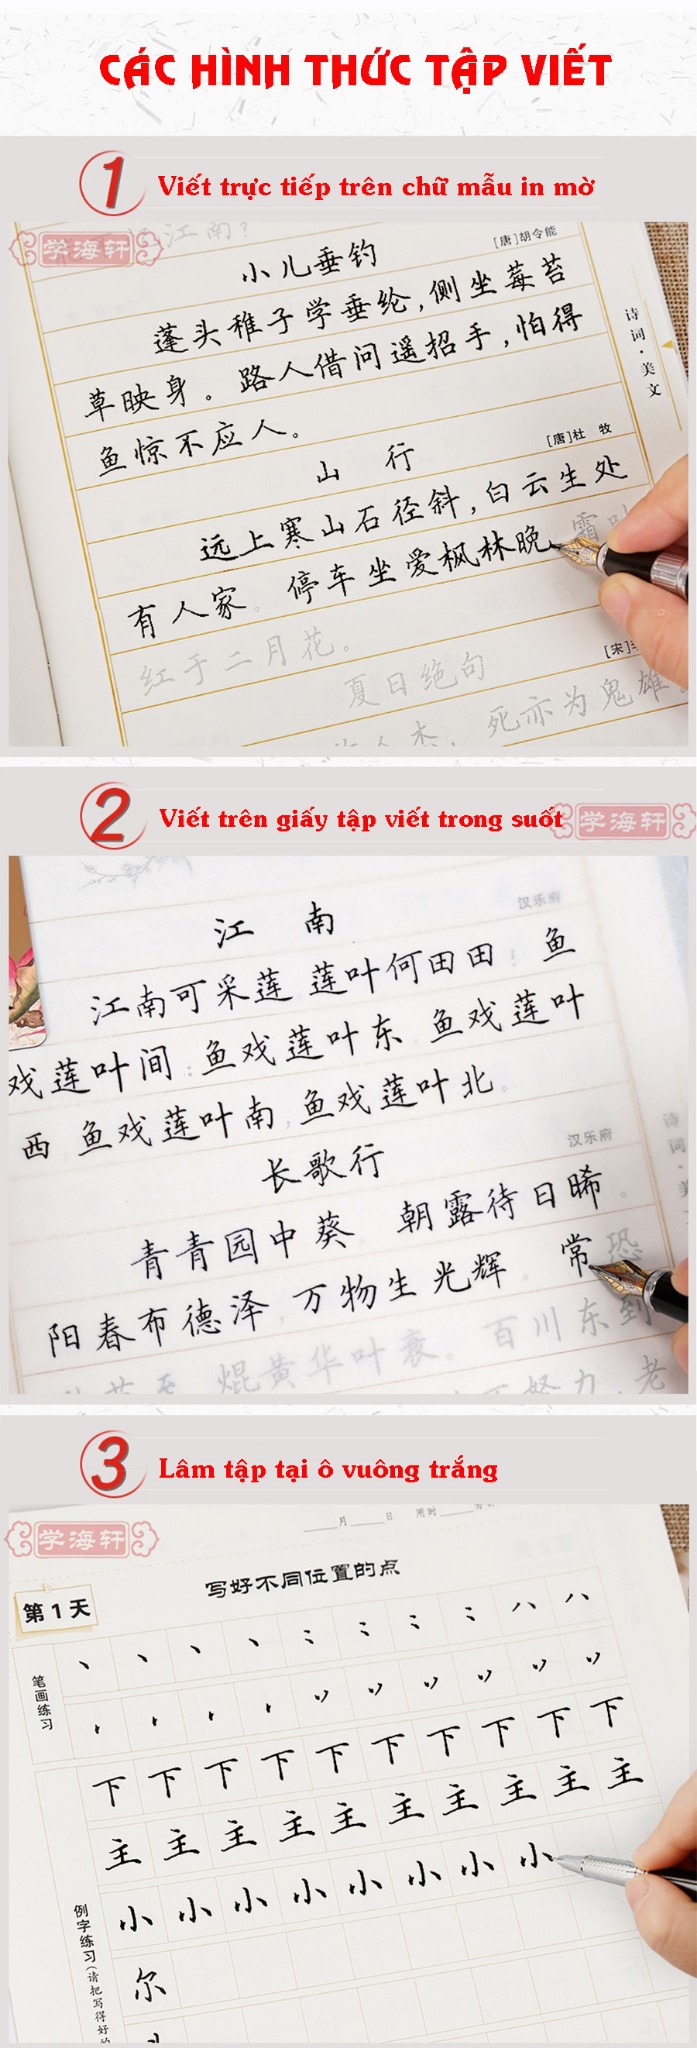 CÁC HÌNH THỨC TẬP VIẾT
1 Viết trực tiếp trên chữ mẫu in mờ
学海轩
江南?
小儿垂钓
[唐]胡令能
蓬头稚子学垂纶,侧坐莓苔
草映身。路人借问遥招手,怕得
鱼惊不应人。
诗词·美文
山 行
[唐]杜 牧
远上寒山石径斜,白云生处
有人家。停车坐爱枫林晚,霜叶
红于二月花。
夏日绝句
[宋]
人杰,死亦为鬼雄。
2 Viết trên giấy tập viết trong suốt
学海轩
江 南
汉乐府
江南可采莲 莲叶何田田! 鱼
戏莲叶间:鱼戏莲叶东 鱼戏莲叶
西 鱼戏莲叶南,鱼戏莲叶北。
长歌行
汉乐府
诗词·美
青青园中葵 朝露待日晞。
阳春布德泽,万物生光辉。常恐
焜黄华叶衰。百川东到
努力,老
3 Lâm tập tại ô vuông trắng
学海轩
月 日 用时 分钟
写好不同位置的点
第1天
笔画练习
下下下下下下下下下下
主主主主主主主主主主
小小小小小小小小
尔
例字练习(请把写得好的